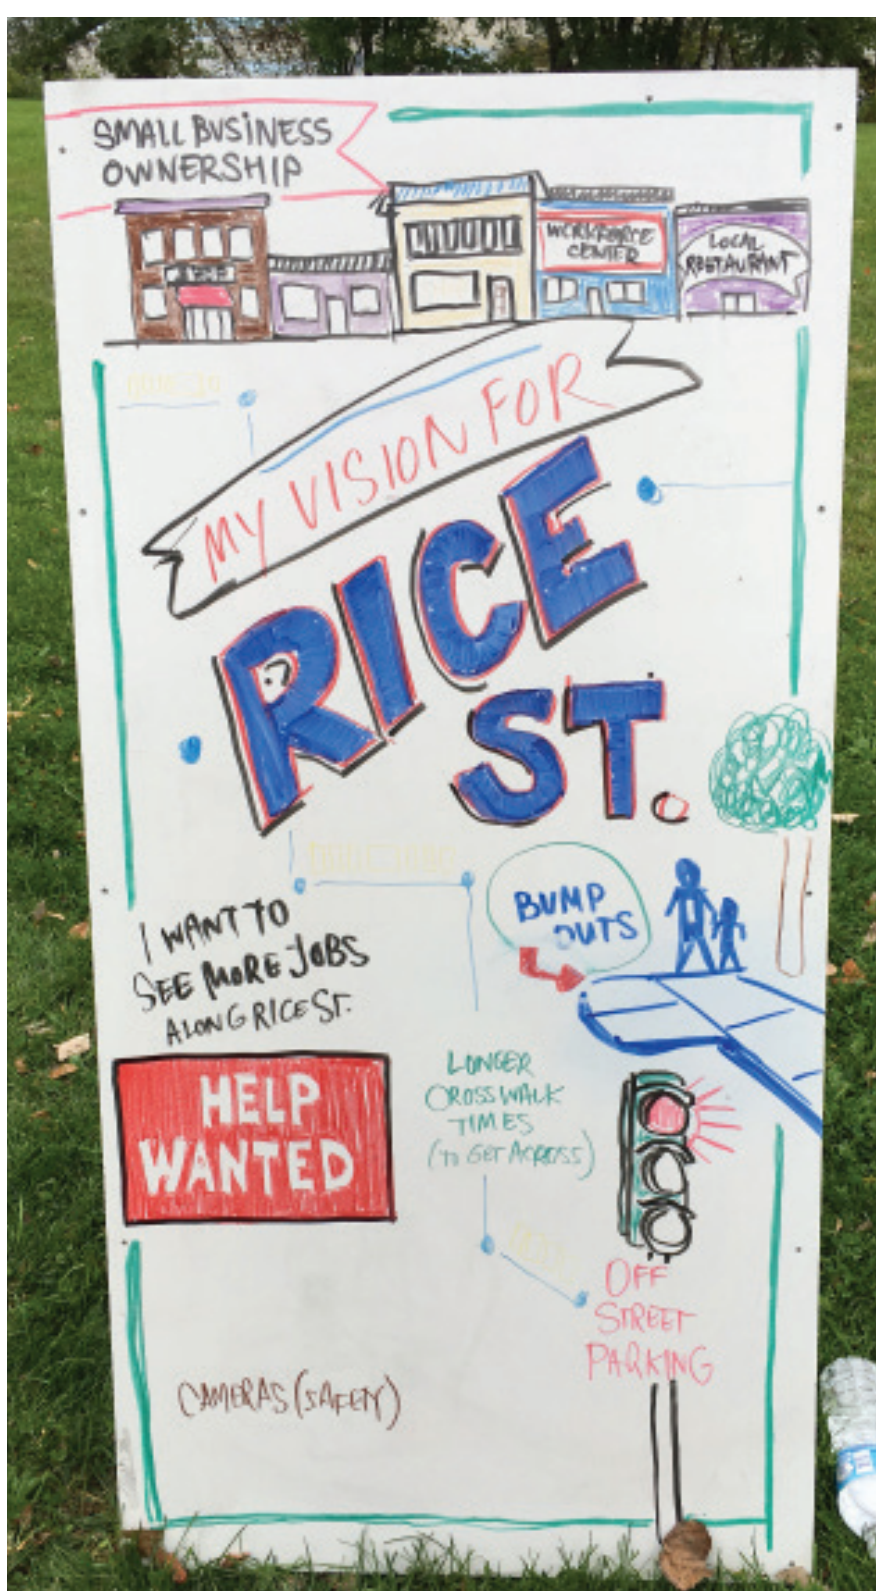 SMALL BUSINESS
OWNERSHIP
WORKFORCE
CENTER
LOCAL
RESTAURANT
MY VISION FOR
RICE
ST.
BUMP
OUTS
I WANT TO
SEE MORE JOBS
ALONG RICE ST.
HELP
WANTED
LONGER
CROSSWALK
TIMES
(TO GET ACROSS)
OFF
STREET
PARKING
CAMERAS (SAFETY)